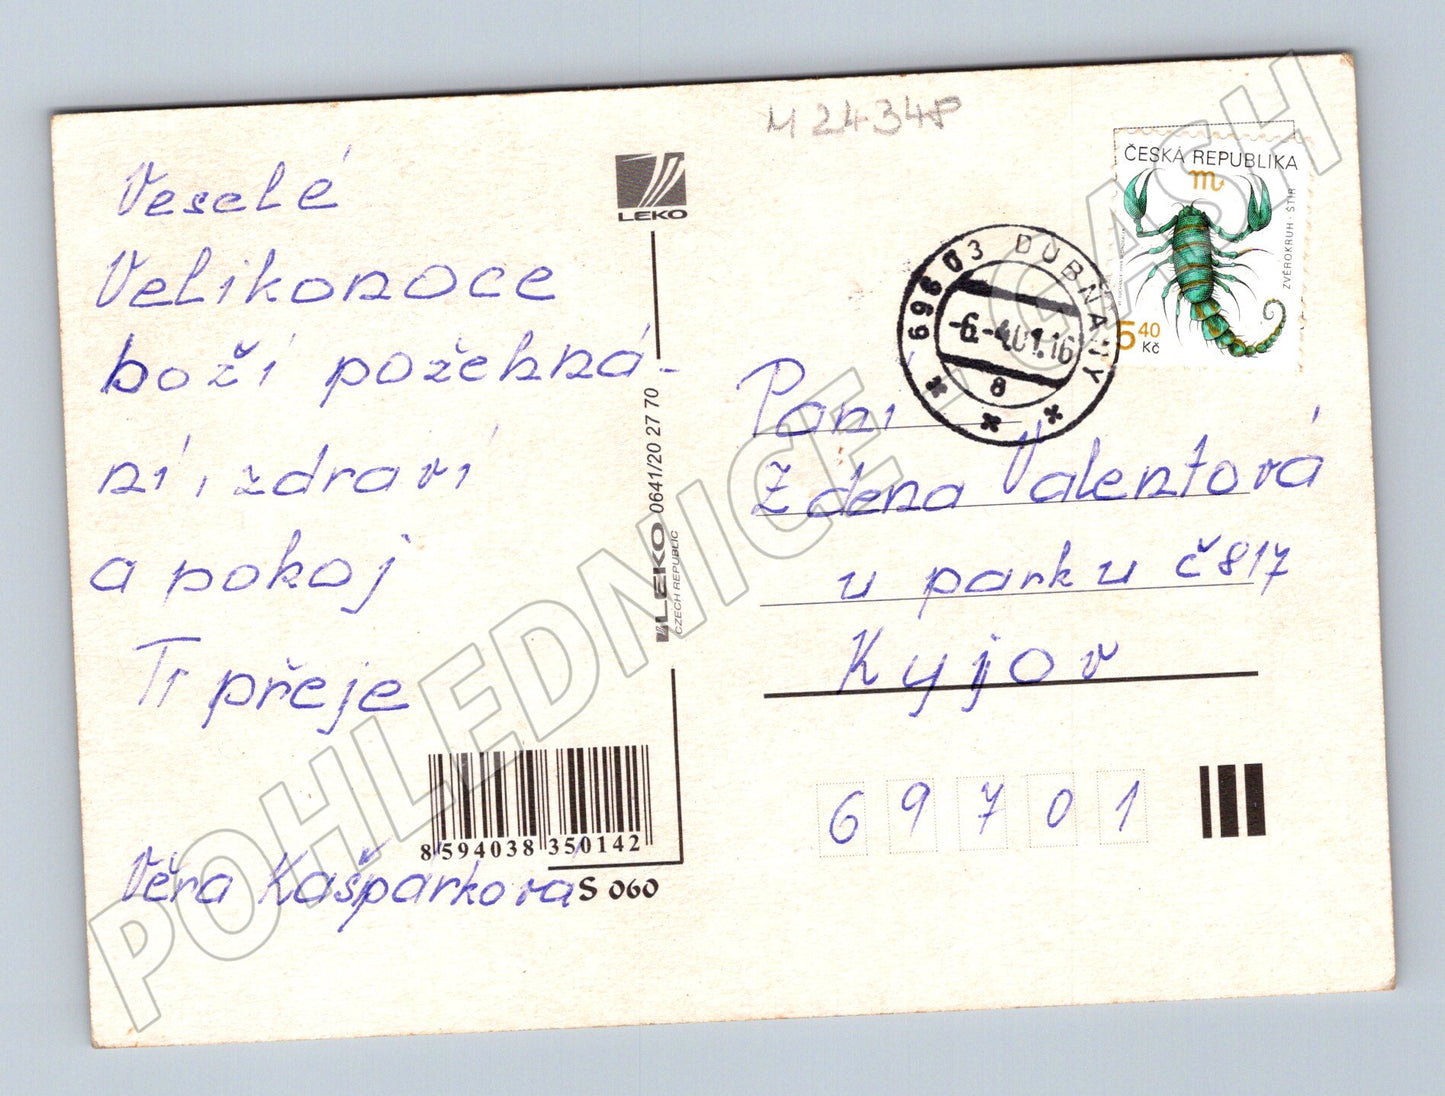 M 24348
LEKO
ČESKÁ REPUBLIKA
ZVĚROKRUH · ŠTÍR
5 40
Kč
696 03 DUBŇANY
-6.-4.01.16
a
Veselé
Velikonoce
boží požehná-
ní, zdraví
a pokoj
Ti přeje
Věra Kašparkova
LEKO 0641/20 27 70
CZECH REPUBLIC
8 594038 350142
S 060
Paní
Zdena Valentová
u parku č 817
Kyjov
69701
POHLEDNICE - CASH